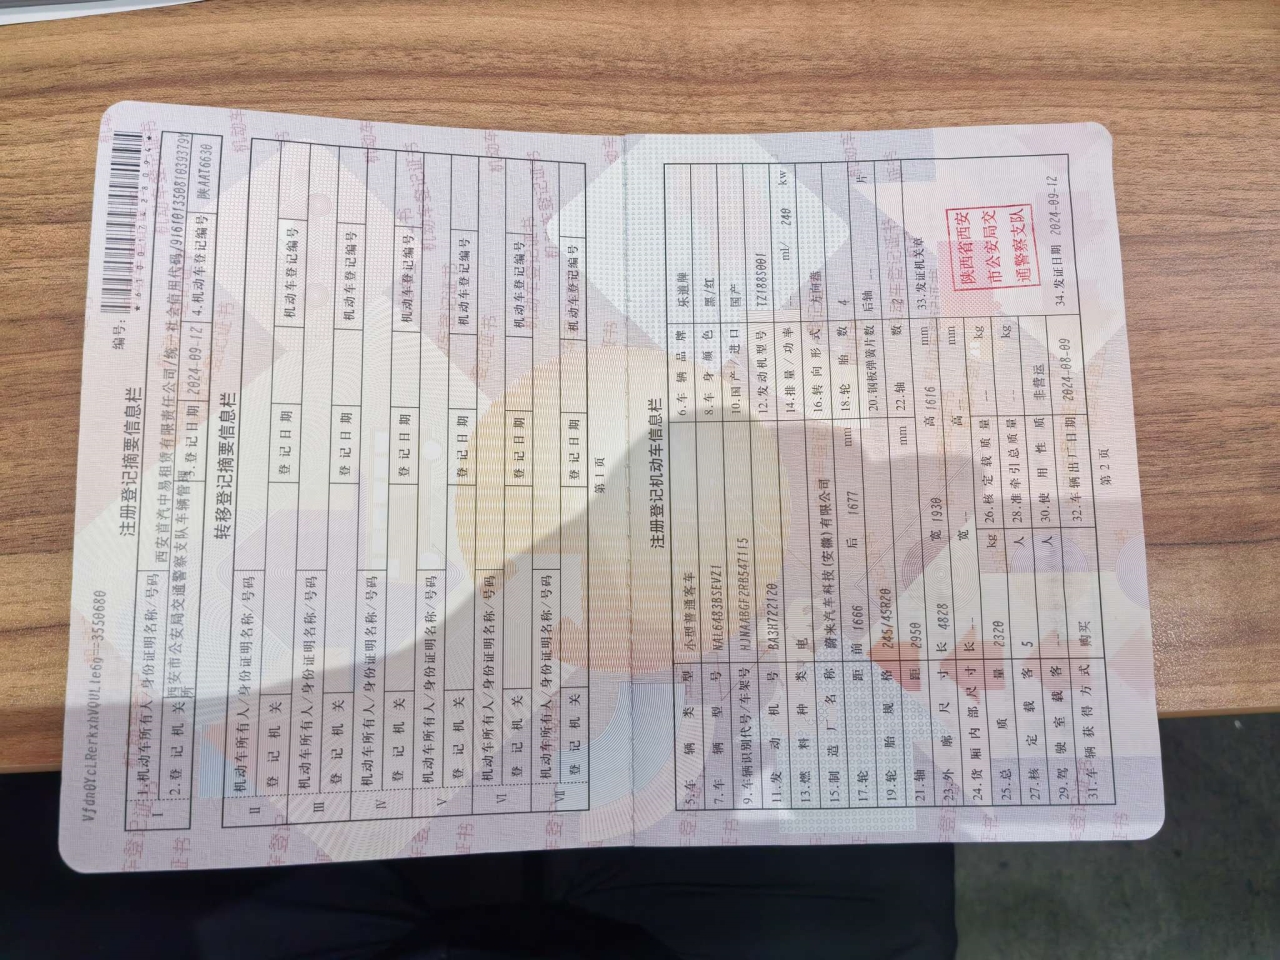 Vfdn0YcLRerkxhVQULle6g==3550680
编号:
注册登记摘要信息栏
Ⅰ 1.机动车所有人/身份证明名称/号码 西安首汽中易租赁有限责任公司/统一社会信用代码/91610135081039379
2.登记机关 西安市公安局交通警察支队车辆管理所 3.登记日期 2024-09-12 4.机动车登记编号 陕AAT6630
转移登记摘要信息栏
Ⅱ 机动车所有人/身份证明名称/号码
登记机关 登记日期 机动车登记编号
Ⅲ 机动车所有人/身份证明名称/号码
登记机关 登记日期 机动车登记编号
Ⅳ 机动车所有人/身份证明名称/号码
登记机关 登记日期 机动车登记编号
Ⅴ 机动车所有人/身份证明名称/号码
登记机关 登记日期 机动车登记编号
Ⅵ 机动车所有人/身份证明名称/号码
登记机关 登记日期 机动车登记编号
Ⅶ 机动车所有人/身份证明名称/号码
登记机关 登记日期 机动车登记编号
第1页
注册登记机动车信息栏
5.车辆类型 小型普通客车 6.车辆品牌 乐道牌
7.车辆型号 NAL6483BSEVZ1 8.车身颜色 黑/红
9.车辆识别代号/车架号 HJNAABGF2RB547115 10.国产/进口 国产
11.发动机号 BA3H722120 12.发动机型号 TZ188S001
13.燃料种类 电 14.排量/功率 ml/ 240 kw
15.制造厂名称 蔚来汽车科技(安徽)有限公司 16.转向形式 方向盘
17.轮距 前 1666 后 1677 mm 18.轮胎数 4
19.轮胎规格 245/45R20 20.钢板弹簧片数 后轴 -- 片
21.轴距 2950 mm 22.轴数 2
23.外廓尺寸 长 4828 宽 1930 高 1616 mm 33.发证机关章
24.货厢内部尺寸 长 -- 宽 -- 高 -- mm
25.总质量 2320 kg 26.核定载质量 -- kg
27.核定载客 5 人 28.准牵引总质量 -- kg
29.驾驶室载客 -- 人 30.使用性质 非营运
31.车辆获得方式 购买 32.车辆出厂日期 2024-08-09 34.发证日期 2024-09-12
陕西省西安
市公安局交
通警察支队
第2页